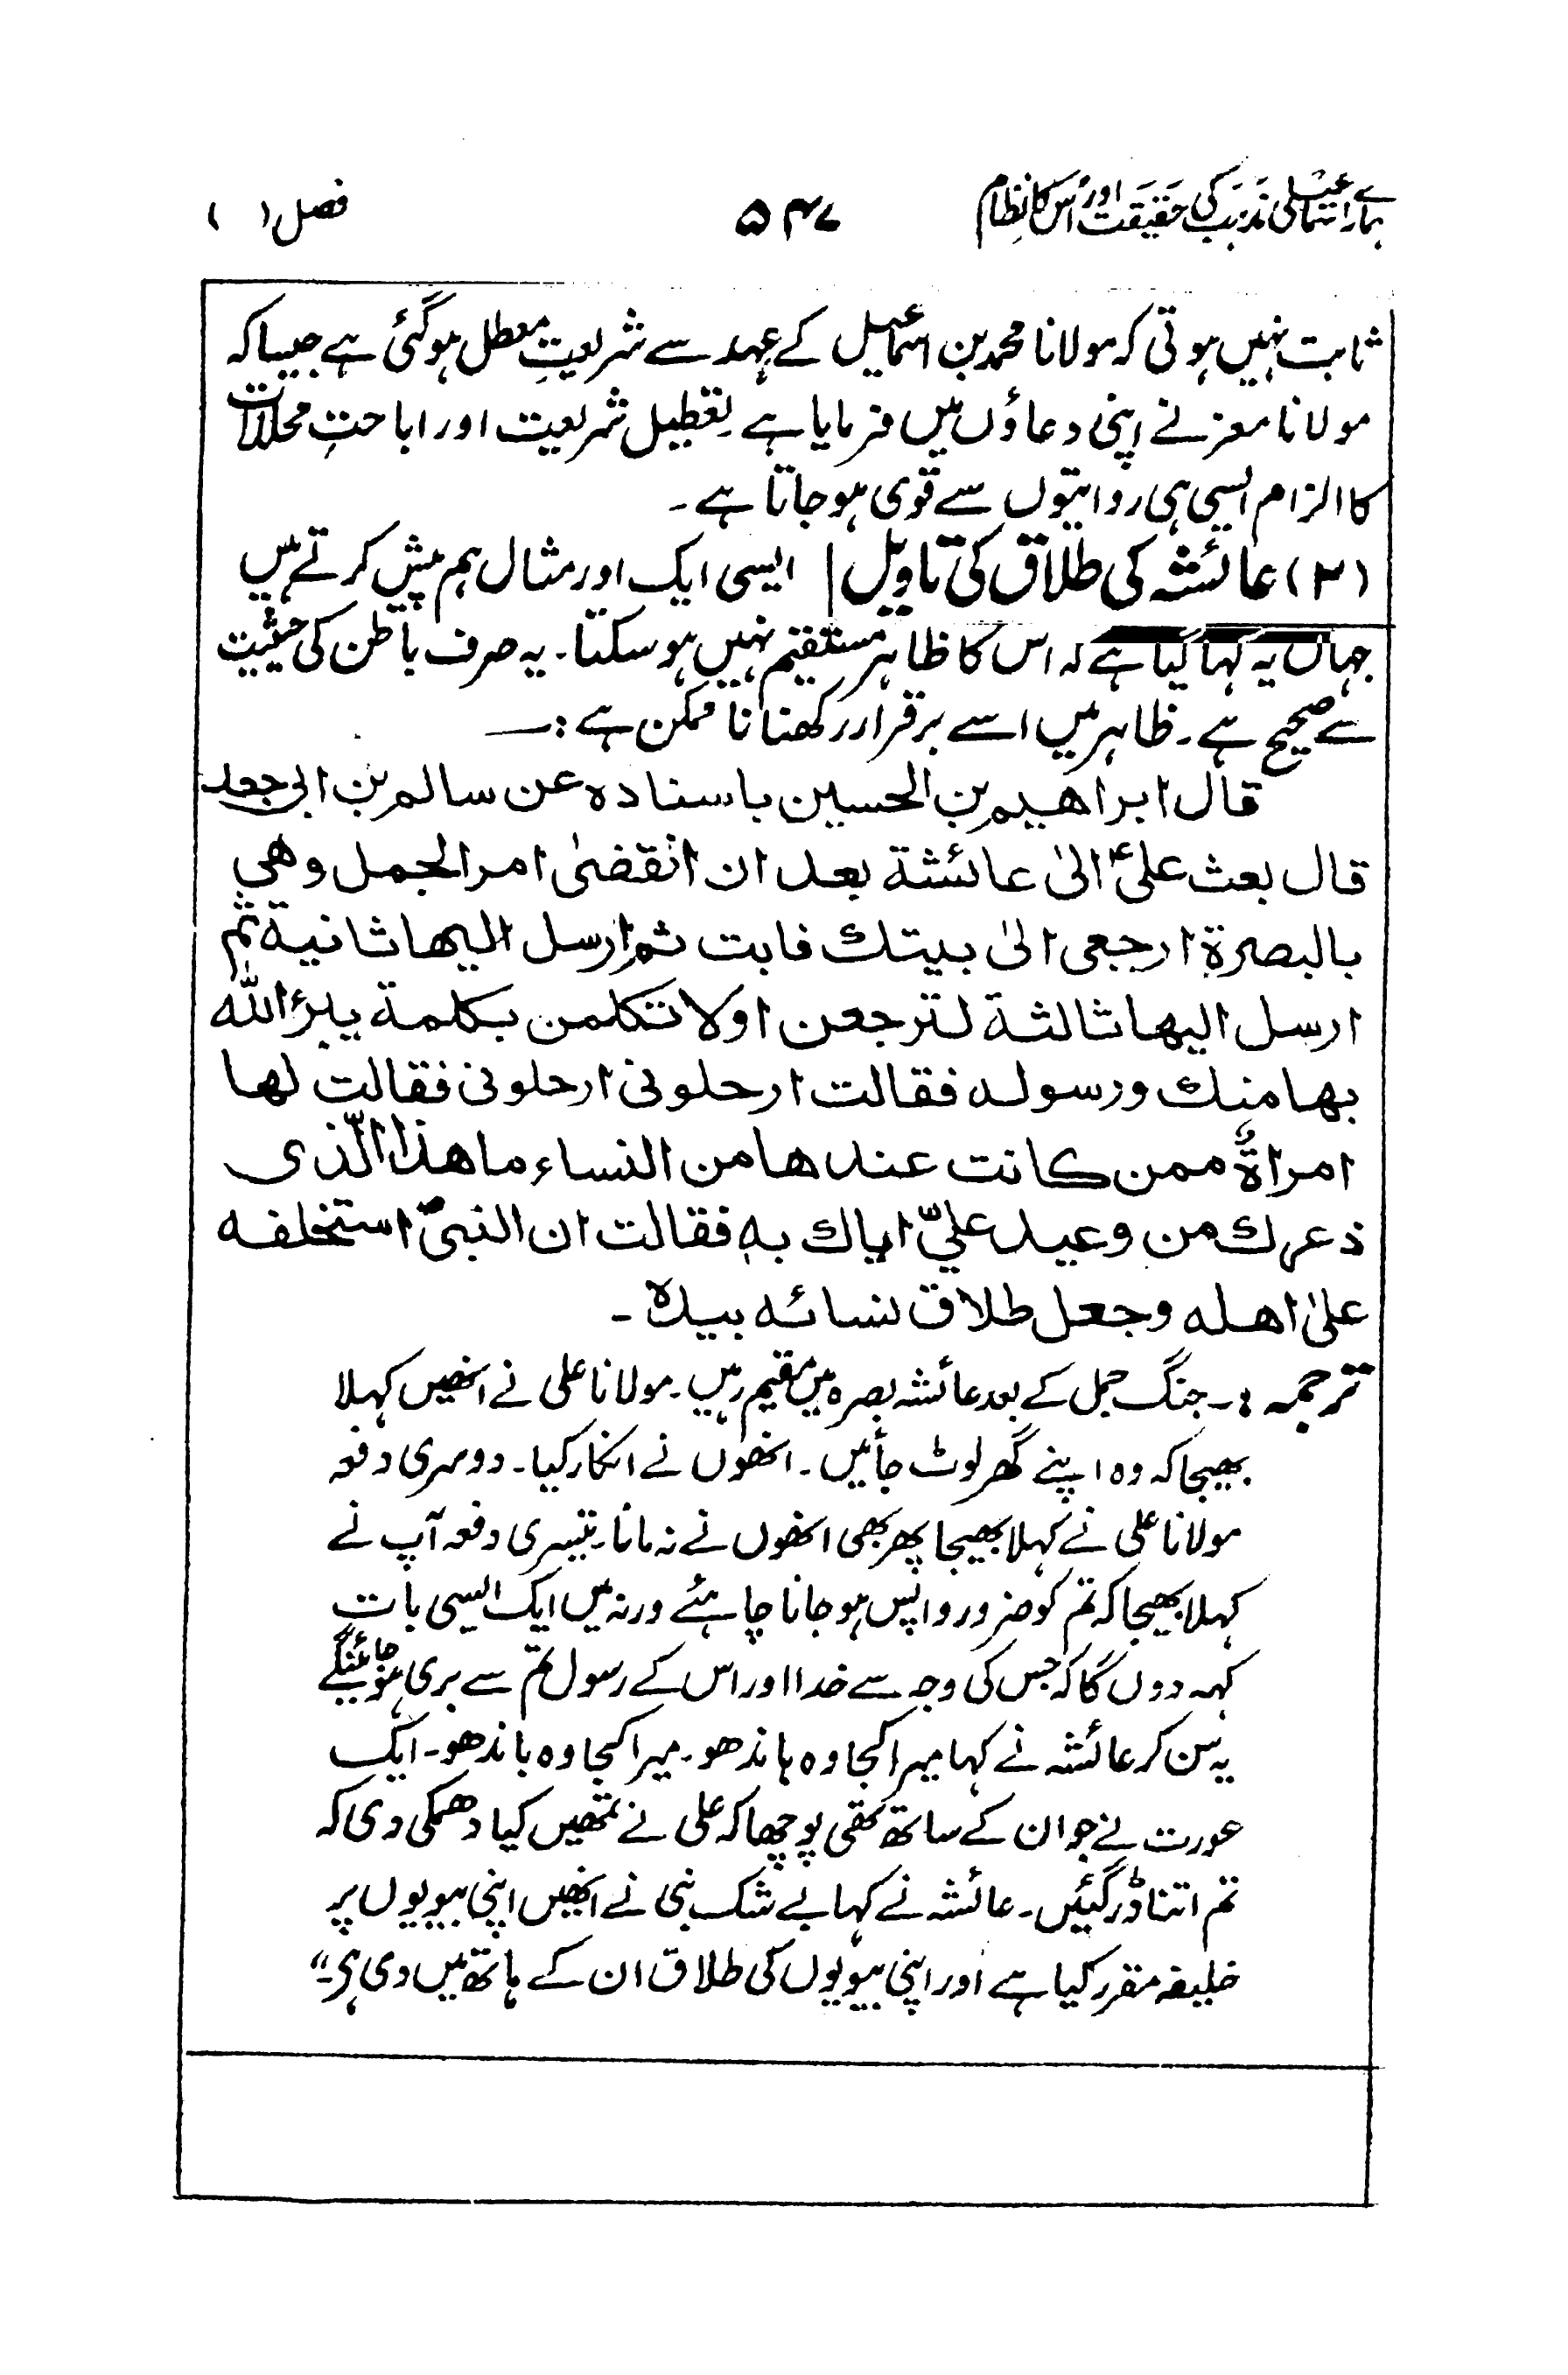 ہمارے اسماعیلی مذہب کی حقیقت اور اس کا نظام
۵۴۷
فصل ( )
ثابت نہیں ہوتی کہ مولانا محمد بن اسماعیل کے عہد سے شریعت معطل ہو گئی ہے جیسا کہ
مولانا معز نے اپنی دعاؤں میں فرمایا ہے۔ تعطیل شریعت اور اباحتِ محللات
کا الزام ایسی ہی روایتوں سے قوی ہو جاتا ہے۔
(۳) عائشہ کی طلاق کی تاویل | ایسی ایک اور مثال ہم پیش کرتے ہیں
جہاں یہ کہا گیا ہے کہ اس کا ظاہر مستقیم نہیں ہو سکتا۔ یہ صرف باطن کی حیثیت
سے صحیح ہے۔ ظاہر میں اسے برقرار رکھنا نا ممکن ہے :۔
قال ابراهيم بن الحسين باسناده عن سالم بن ابی جعد
قال بعث علیؑ الىٰ عائشة بعد ان انقضىٰ امر الجمل وهي
بالبصرة ارجعی الىٰ بيتك فابت ثم ارسل اليها ثانية ثم
ارسل اليها ثالثة لترجعن اولا تكلمن بكلمة يبرئ الله
بها منك ورسوله فقالت ارحلونی ارحلونی فقالت لها
امراةٌ ممن كانت عندها من النساء ما هذا الّذی
ذعرك من وعيد عليّ اياك به فقالت ان النبیؐ استخلفه
علىٰ اهله وجعل طلاق نسائه بيده۔
ترجمہ :۔ جنگ جمل کے بعد عائشہ بصرہ میں مقیم رہیں۔ مولانا علی نے انھیں کہلا
بھیجا کہ وہ اپنے گھر لوٹ جائیں۔ انھوں نے انکار کیا۔ دوسری دفعہ
مولانا علی نے کہلا بھیجا پھر بھی انھوں نے نہ مانا۔ تیسری دفعہ آپ نے
کہلا بھیجا کہ تم کو ضرور واپس ہو جانا چاہئے ورنہ میں ایک ایسی بات
کہہ دوں گا کہ جس کی وجہ سے خدا اور اس کے رسول تم سے بری ہو جائینگے
یہ سن کر عائشہ نے کہا میرا کجاوہ باندھو۔ میرا کجاوہ باندھو۔ ایک
عورت نے جو ان کے ساتھ تھی پوچھا کہ علی نے تمھیں کیا دھمکی دی کہ
تم اتنا ڈر گئیں۔ عائشہ نے کہا بے شک نبی نے انھیں اپنی بیویوں پر
خلیفہ مقرر کیا ہے اور اپنی بیویوں کی طلاق ان کے ہاتھ میں دی ہی۔“